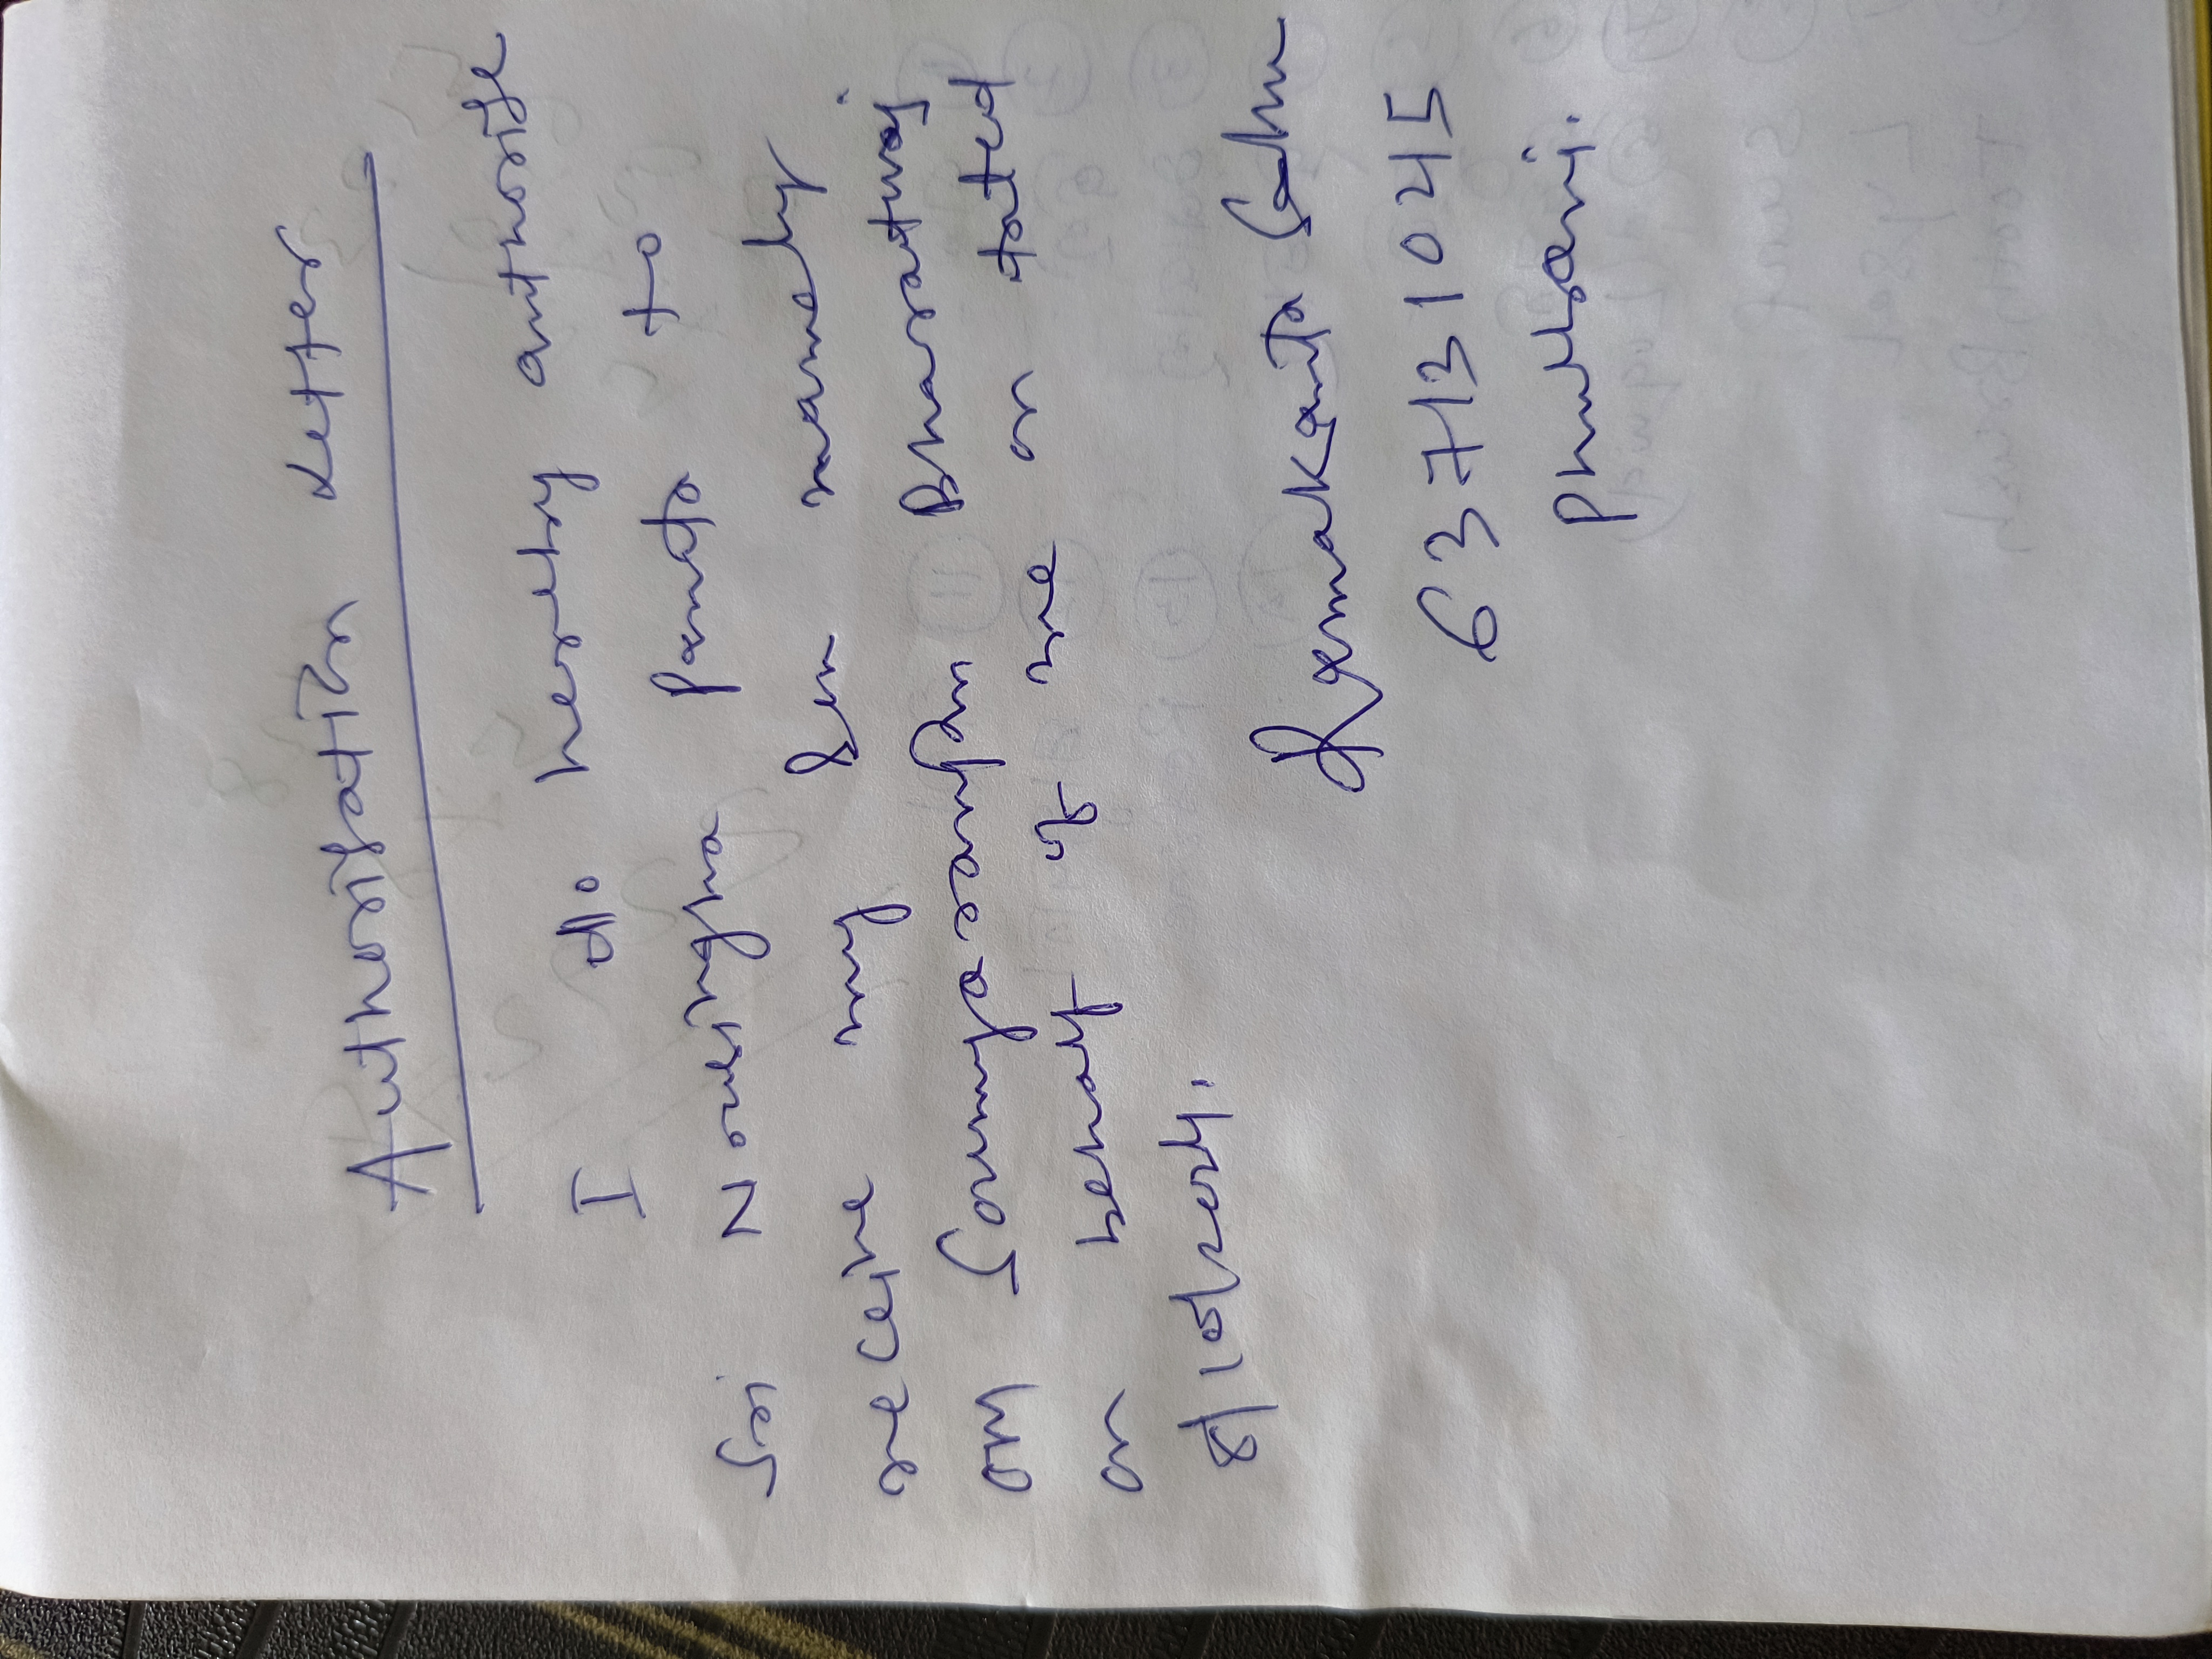 Authorisation Letter
I di. hereby authorise
Sri Narsingha Panda to
receive my son namely
Om Soumya Bharatwaj
on behalf of me on tated
8/10/2024.
Ramakanta Sahu
637131045
Phulbani.